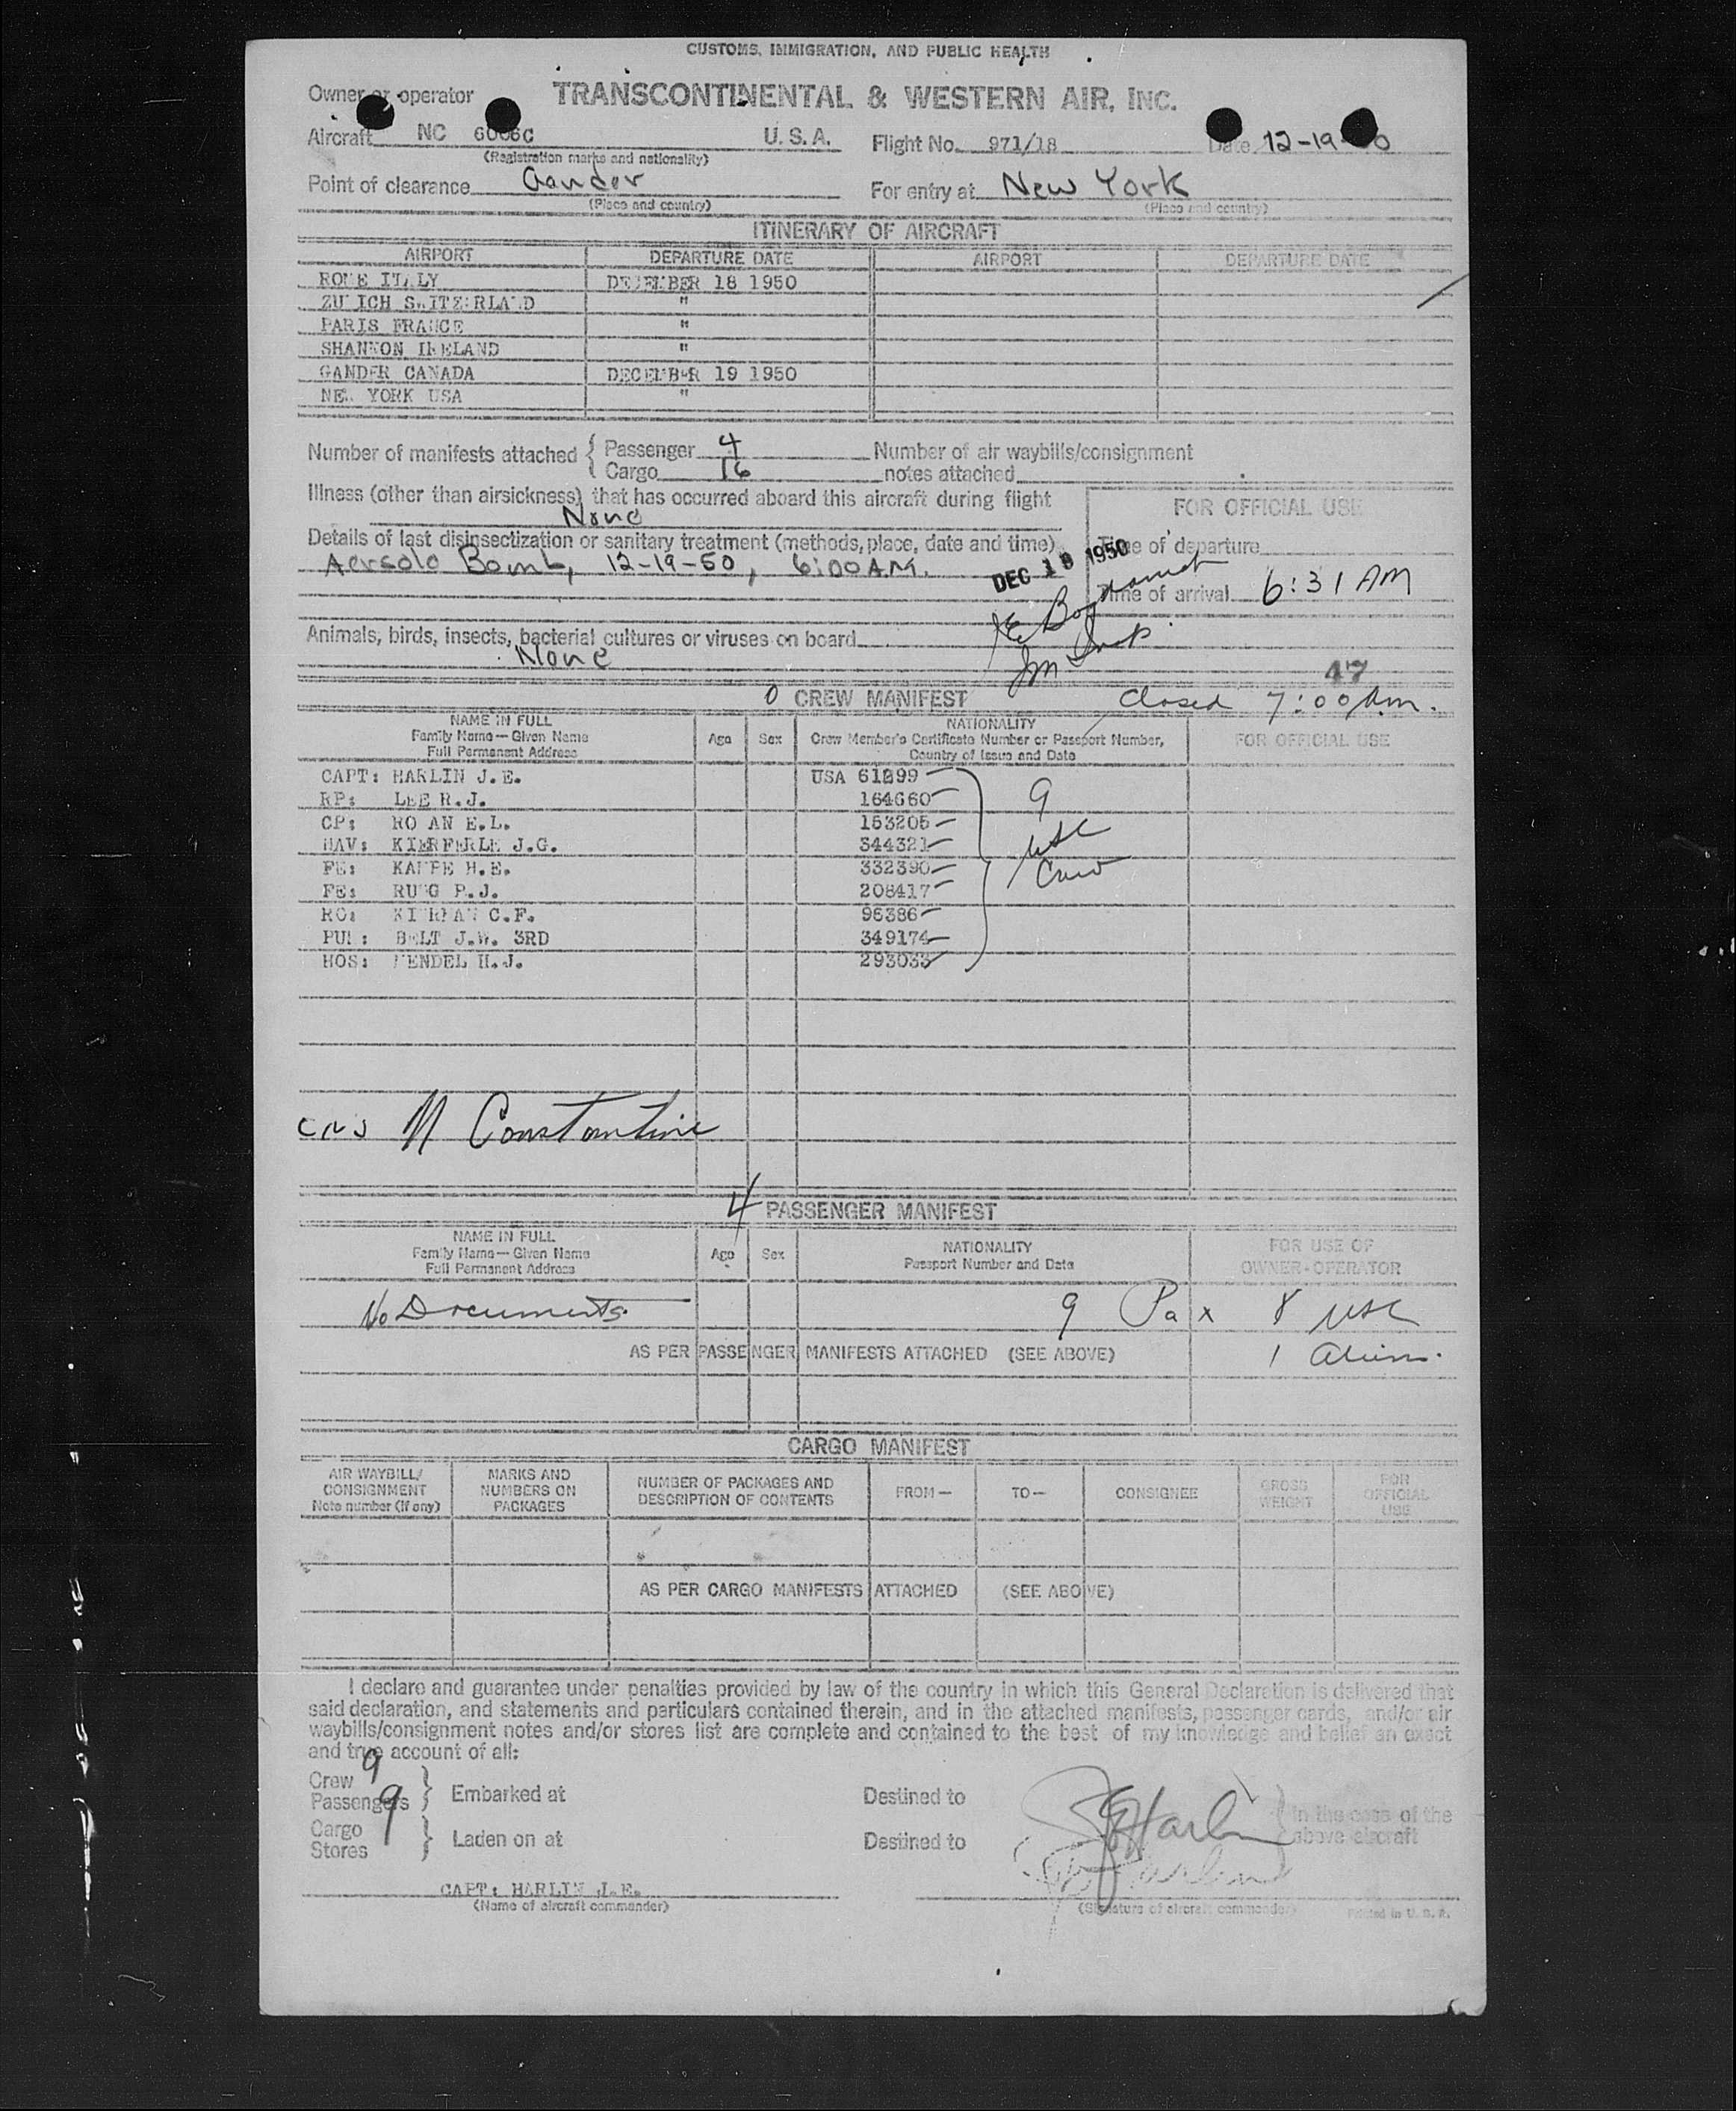 CUSTOMS, IMMIGRATION, AND PUBLIC HEALTH
Owner or operator TRANSCONTINENTAL & WESTERN AIR, INC.
Aircraft NC 6006C U.S.A. Flight No. 971/18 Date 12-19-50
(Registration marks and nationality)
Point of clearance Gander For entry at New York
(Place and country) (Place and country)
ITINERARY OF AIRCRAFT
AIRPORT DEPARTURE DATE AIRPORT DEPARTURE DATE
ROME ITALY DECEMBER 18 1950
ZURICH SWITZERLAND "
PARIS FRANCE "
SHANNON IRELAND "
GANDER CANADA DECEMBER 19 1950
NEW YORK USA "
Number of manifests attached { Passenger 4 Number of air waybills/consignment
Cargo 16 notes attached
Illness (other than airsickness) that has occurred aboard this aircraft during flight FOR OFFICIAL USE
None
Details of last disinsectization or sanitary treatment (methods, place, date and time) Time of departure
Aersolo Bomb, 12-19-50, 6:00 A.M. DEC 18 1950
Time of arrival 6:31 AM
Animals, birds, insects, bacterial cultures or viruses on board
None
47
0 CREW MANIFEST Closed 7:00 Am.
NAME IN FULL NATIONALITY
Family Name—Given Name Age Sex Crew Member's Certificate Number or Passport Number, FOR OFFICIAL USE
Full Permanent Address Country of Issue and Date
CAPT: HARLIN J.E. USA 61899
RP: LEE R.J. 164660 9
CP: RO AN E.L. 153205
NAV: KIERFERLE J.G. 344321 USC
FE: KAUPE H.E. 332390 Crew
FE: RUNG P.J. 208417
RO: KIERNAN C.F. 96386
PUR: BELT J.W. 3RD 349174
HOS: WENDEL H.J. 293033
M Constantine
4 PASSENGER MANIFEST
NAME IN FULL NATIONALITY FOR USE OF
Family Name—Given Name Age Sex Passport Number and Date OWNER-OPERATOR
Full Permanent Address
No Documents 9 Pax 8 USC
AS PER PASSENGER MANIFESTS ATTACHED (SEE ABOVE) 1 Alien.
CARGO MANIFEST
AIR WAYBILL/ MARKS AND NUMBER OF PACKAGES AND FROM— TO— CONSIGNEE GROSS FOR
CONSIGNMENT NUMBERS ON DESCRIPTION OF CONTENTS WEIGHT OFFICIAL
Note number (if any) PACKAGES USE
AS PER CARGO MANIFESTS ATTACHED (SEE ABOVE)
I declare and guarantee under penalties provided by law of the country in which this General Declaration is delivered that
said declaration, and statements and particulars contained therein, and in the attached manifests, passenger cards, and/or air
waybills/consignment notes and/or stores list are complete and contained to the best of my knowledge and belief an exact
and true account of all:
Crew 9
Passengers 9 } Embarked at Destined to
Cargo
Stores } Laden on at Destined to
JE Harlin
} In the case of the
above aircraft
CAPT: HARLIN J.E.
(Name of aircraft commander) (Signature of aircraft commander) Printed in U.S.A.